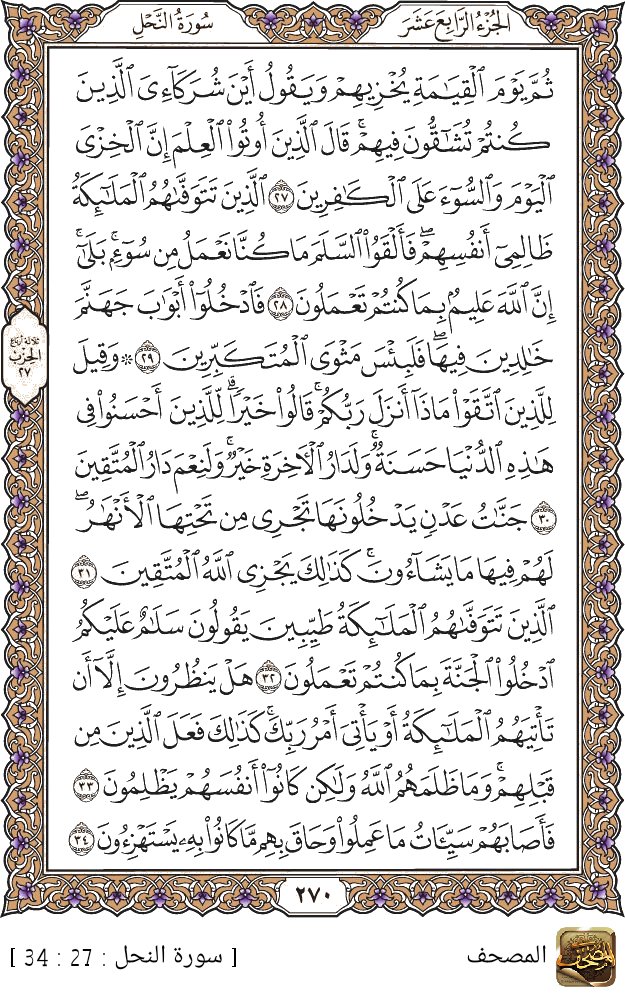 الجزء الرابع عشر
سورة النحل
ثُمَّ يَوْمَ ٱلْقِيَٰمَةِ يُخْزِيهِمْ وَيَقُولُ أَيْنَ شُرَكَآءِىَ ٱلَّذِينَ
كُنتُمْ تُشَٰٓقُّونَ فِيهِمْ ۚ قَالَ ٱلَّذِينَ أُوتُوا۟ ٱلْعِلْمَ إِنَّ ٱلْخِزْىَ
ٱلْيَوْمَ وَٱلسُّوٓءَ عَلَى ٱلْكَٰفِرِينَ ٢٧ ٱلَّذِينَ تَتَوَفَّىٰهُمُ ٱلْمَلَٰٓئِكَةُ
ظَالِمِىٓ أَنفُسِهِمْ ۖ فَأَلْقَوُا۟ ٱلسَّلَمَ مَا كُنَّا نَعْمَلُ مِن سُوٓءٍۭ ۚ بَلَىٰٓ ۚ
إِنَّ ٱللَّهَ عَلِيمٌۢ بِمَا كُنتُمْ تَعْمَلُونَ ٢٨ فَٱدْخُلُوٓا۟ أَبْوَٰبَ جَهَنَّمَ
خَٰلِدِينَ فِيهَا ۖ فَلَبِئْسَ مَثْوَى ٱلْمُتَكَبِّرِينَ ٢٩ ۞ وَقِيلَ
لِلَّذِينَ ٱتَّقَوْا۟ مَاذَآ أَنزَلَ رَبُّكُمْ ۚ قَالُوا۟ خَيْرًا ۗ لِّلَّذِينَ أَحْسَنُوا۟ فِى
هَٰذِهِ ٱلدُّنْيَا حَسَنَةٌ ۚ وَلَدَارُ ٱلْءَاخِرَةِ خَيْرٌ ۚ وَلَنِعْمَ دَارُ ٱلْمُتَّقِينَ
٣٠ جَنَّٰتُ عَدْنٍ يَدْخُلُونَهَا تَجْرِى مِن تَحْتِهَا ٱلْأَنْهَٰرُ ۖ
لَهُمْ فِيهَا مَا يَشَآءُونَ ۚ كَذَٰلِكَ يَجْزِى ٱللَّهُ ٱلْمُتَّقِينَ ٣١
ٱلَّذِينَ تَتَوَفَّىٰهُمُ ٱلْمَلَٰٓئِكَةُ طَيِّبِينَ يَقُولُونَ سَلَٰمٌ عَلَيْكُمُ
ٱدْخُلُوا۟ ٱلْجَنَّةَ بِمَا كُنتُمْ تَعْمَلُونَ ٣٢ هَلْ يَنظُرُونَ إِلَّآ أَن
تَأْتِيَهُمُ ٱلْمَلَٰٓئِكَةُ أَوْ يَأْتِىَ أَمْرُ رَبِّكَ ۚ كَذَٰلِكَ فَعَلَ ٱلَّذِينَ مِن
قَبْلِهِمْ ۚ وَمَا ظَلَمَهُمُ ٱللَّهُ وَلَٰكِن كَانُوٓا۟ أَنفُسَهُمْ يَظْلِمُونَ ٣٣
فَأَصَابَهُمْ سَيِّـَٔاتُ مَا عَمِلُوا۟ وَحَاقَ بِهِم مَّا كَانُوا۟ بِهِۦ يَسْتَهْزِءُونَ ٣٤
ثلاثة أرباع
الحزب
٢٧
٢٧٠
المصحف
[ سورة النحل : 27 : 34 ]
المصحف